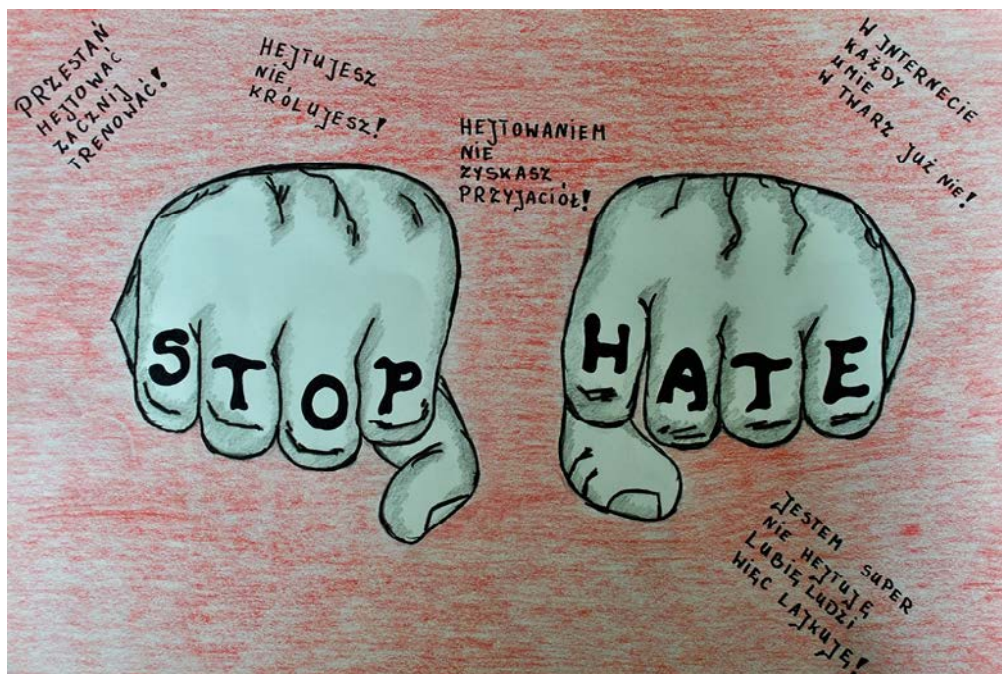 PRZESTAŃ
HEJTOWAĆ
ZACZNIJ
TRENOWAĆ!
HEJTUJESZ
NIE
KRÓLUJESZ!
HEJTOWANIEM
NIE
ZYSKASZ
PRZYJACIÓŁ!
W INTERNECIE
KAŻDY
UMIE
W TWARZ JUŻ NIE!
STOP
HATE
JESTEM SUPER
NIE HEJTUJĘ
LUBIĘ LUDZI
WIĘC LAJKUJĘ!